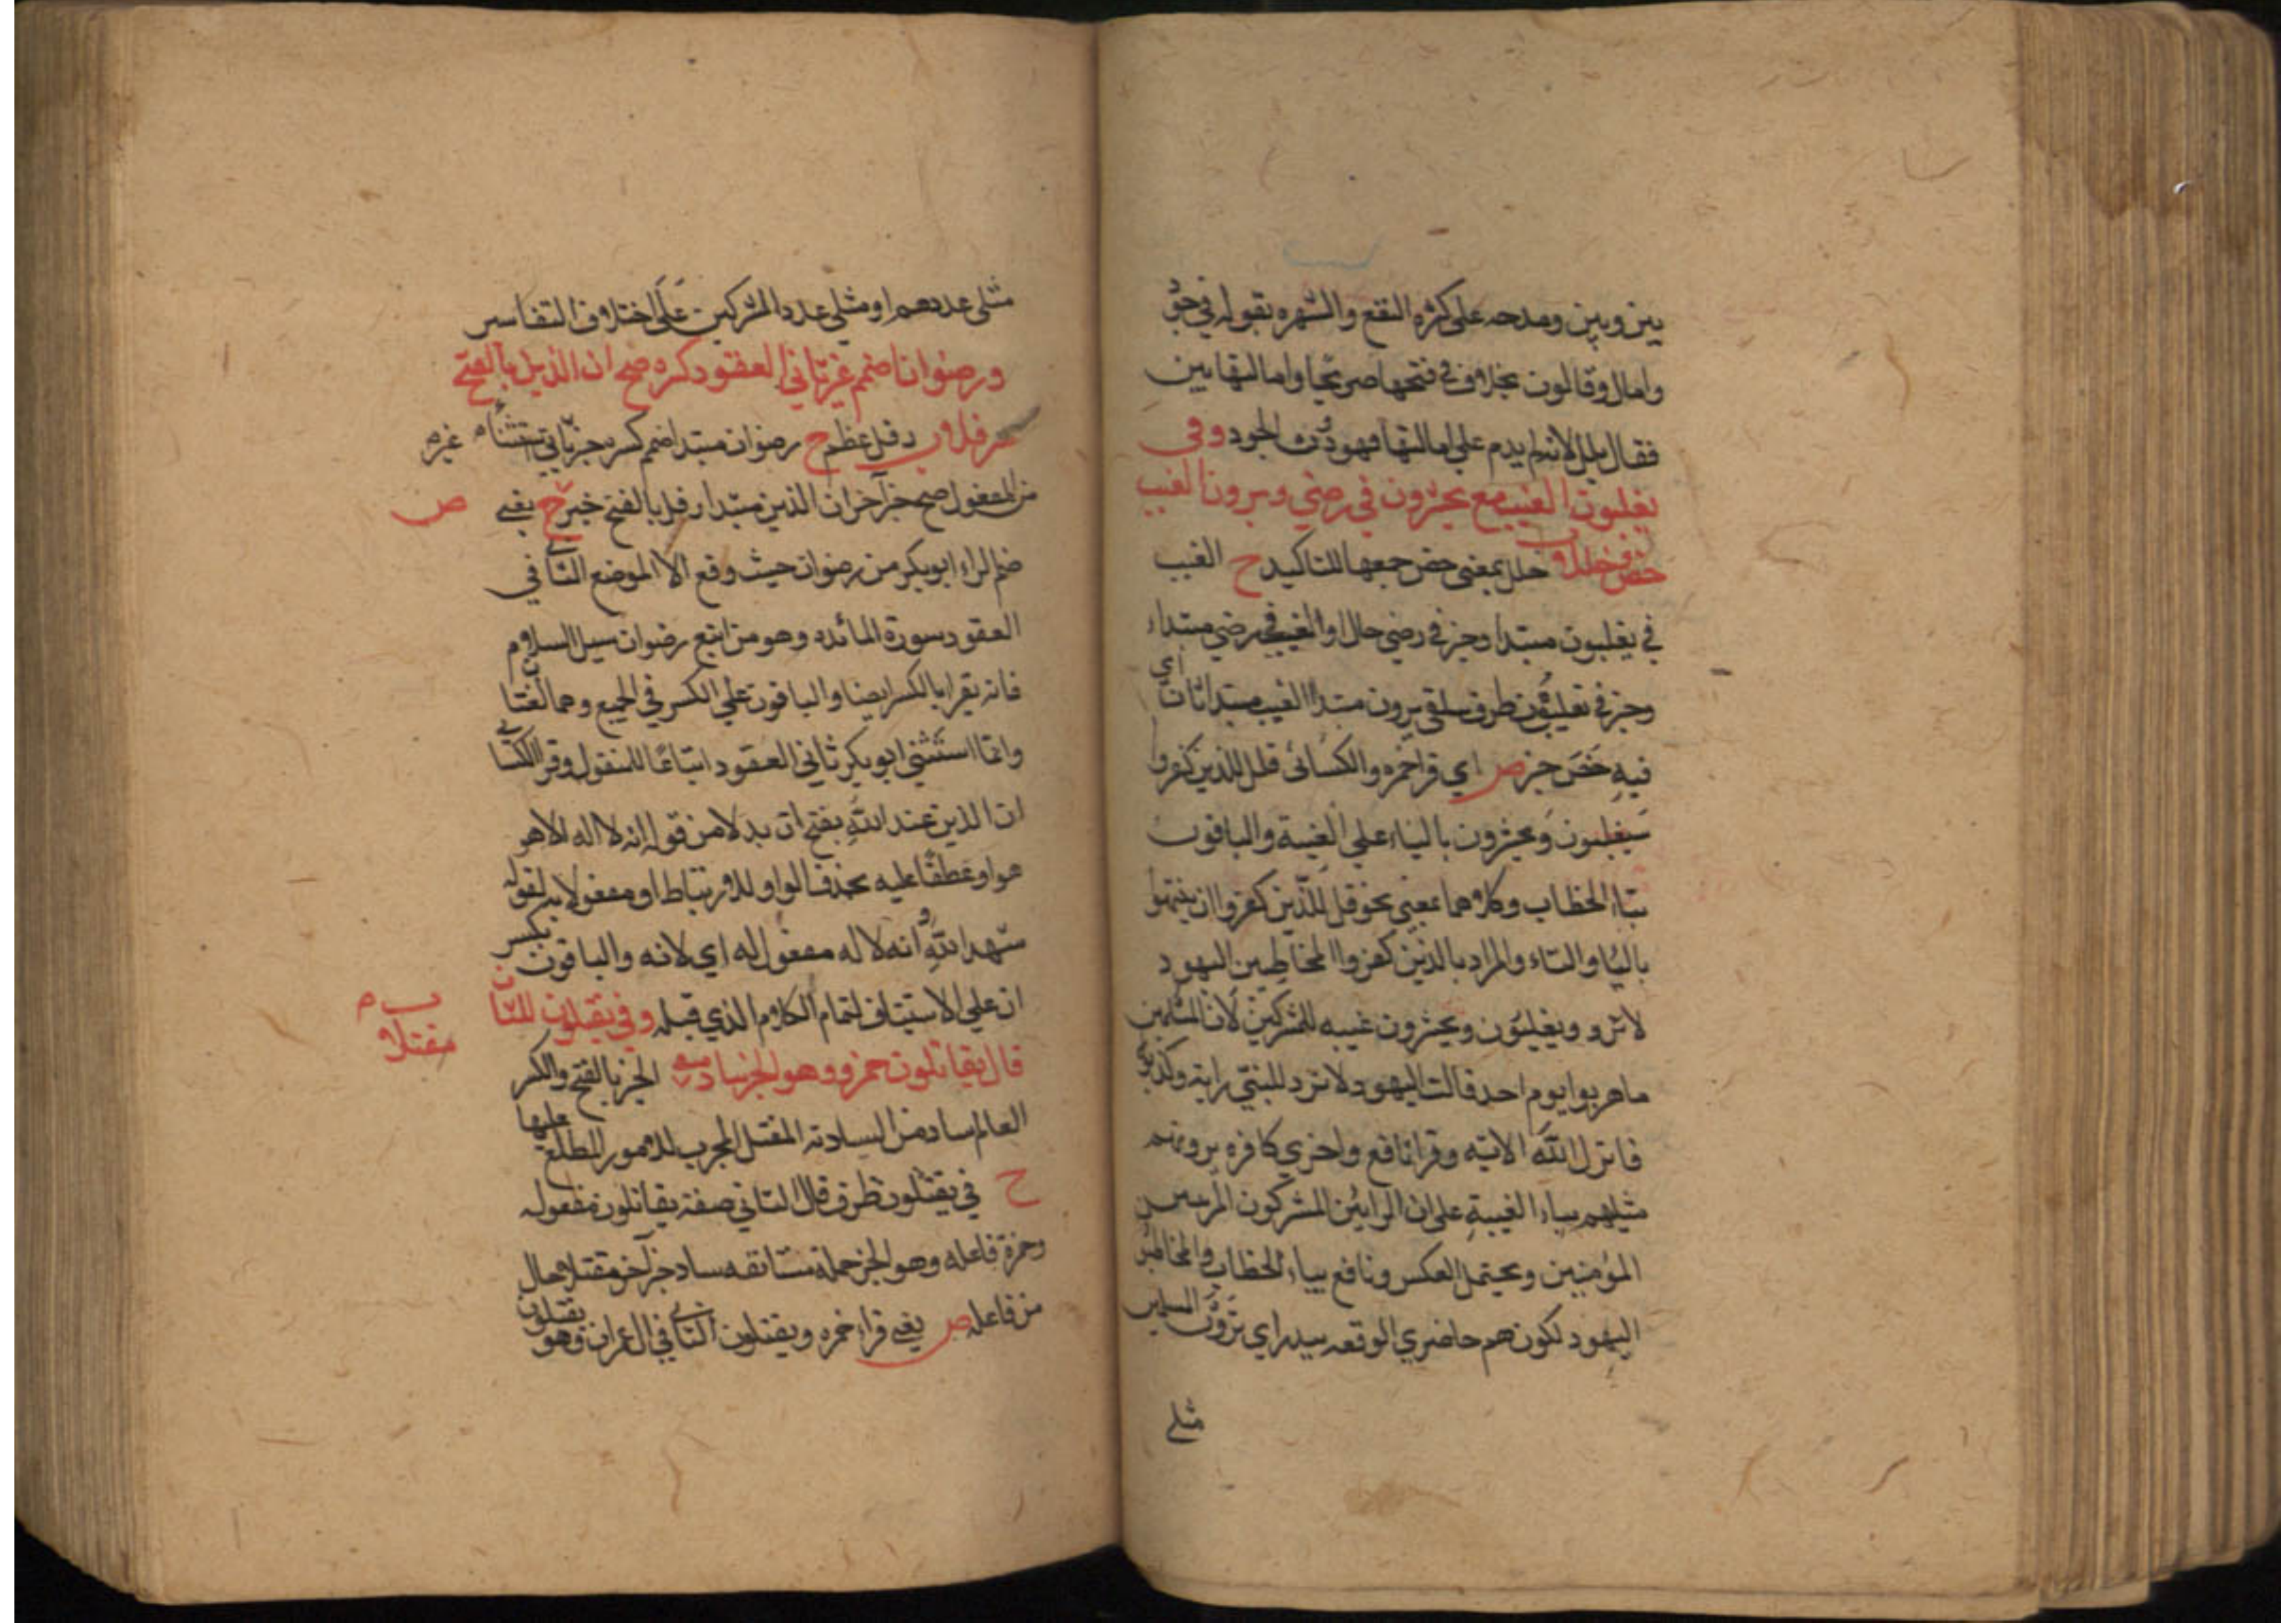 بين وبين ومدحه على كثرة النفع والشهره بقوله في جو
وامال وقالون بخلاف في فتحها صريحا وامالتها بين
فقال بلل لانه لم يدم على امالتها فهو دون الجود وفي
يغلبون الغيب مع يحشرون في رضي ويرون الغيب
خص وخللا خلل بمعنى خص جمعها للتاكيد ح الغيب
في يغلبون مبتدا وخبر في رضي حال او الغيب في رضي مبتداء
وخبر في تغلبون ظرف يرون مبتدا الغيب مبتدا ثان اي
فيه خص خبر ص اي قرا حمزه والكسائي قل للذين كفروا
سيغلبون ويحشرون بالياء على الغيبة والباقون
بتاء الخطاب وكلاهما بمعنى نحو قل للذين كفروا ان ينتهوا
بالياء والتاء والمراد بالذين كفروا المخاطبين اليهود
ويغلبون ويحشرون غيبه للمشركين لان المسلمين
ماهربوا يوم احد قالت اليهود لا ترد للنبي راية وكذبوا
فانزل الله الاتيه وقرا نافع واخري كافره يرونهم
مثليهم بياء الغيبة على ان الرايين المشركون
المؤمنين ويحتمل العكس ونافع بتاء الخطاب والمخاطبون
اليهود لكونهم حاضري الوقعه ببدر اي ترون المسلمين
مثلي
مثلي عددهم او مثلي عدد المشركين على اختلاف التفاسير
ورضوانا اضمم غير ثاني العقود كسره صح ان الذين بالفتح
رفلا رفل عظم ح رضوان مبتدا اضمم كسره خبر ثاني استثناء غير
من المفعول صح خبر آخر ان الذين مبتدا رفل بالفتح خبر ح يعني ص
ضم الراء ابو بكر من رضوان حيث وقع الا الموضع الثاني في
العقود سورة المائده وهو من اتبع رضوان سبل السلام
فانه يقرا بالكسر ايضا والباقون على الكسر في الجميع وهما لغتان
وانما استثني ابو بكر ثاني العقود اتباعا للمنقول وقرا الكسائي
ان الذين عند الله بفتح ان بدلا من قوله انه لا اله الا هو
هو او عطفا عليه بحذف الواو للارتباط او مفعولا به لقوله
شهد الله وانه لا اله مفعول له اي لانه والباقون بكسر
ان على الاستيناف لتمام الكلام الذي قبله وفي يقتلون الثان
قال يقاتلون حمزه وهو الحبر ساد الحبر بالفتح والكسر
مقتلا
العالم ساد من السيادته المقتل المجرب للامور المطلع عليها
ح في يقتلون ظرف قال الثاني صفة يقاتلون مفعوله
وحمزة فاعله وهو الحبر جملة مستانفه ساد خبر آخر مقتلا حال
من فاعله ص يعني قراء حمزه ويقتلون الثاني في ال عمران وهو يقتلون